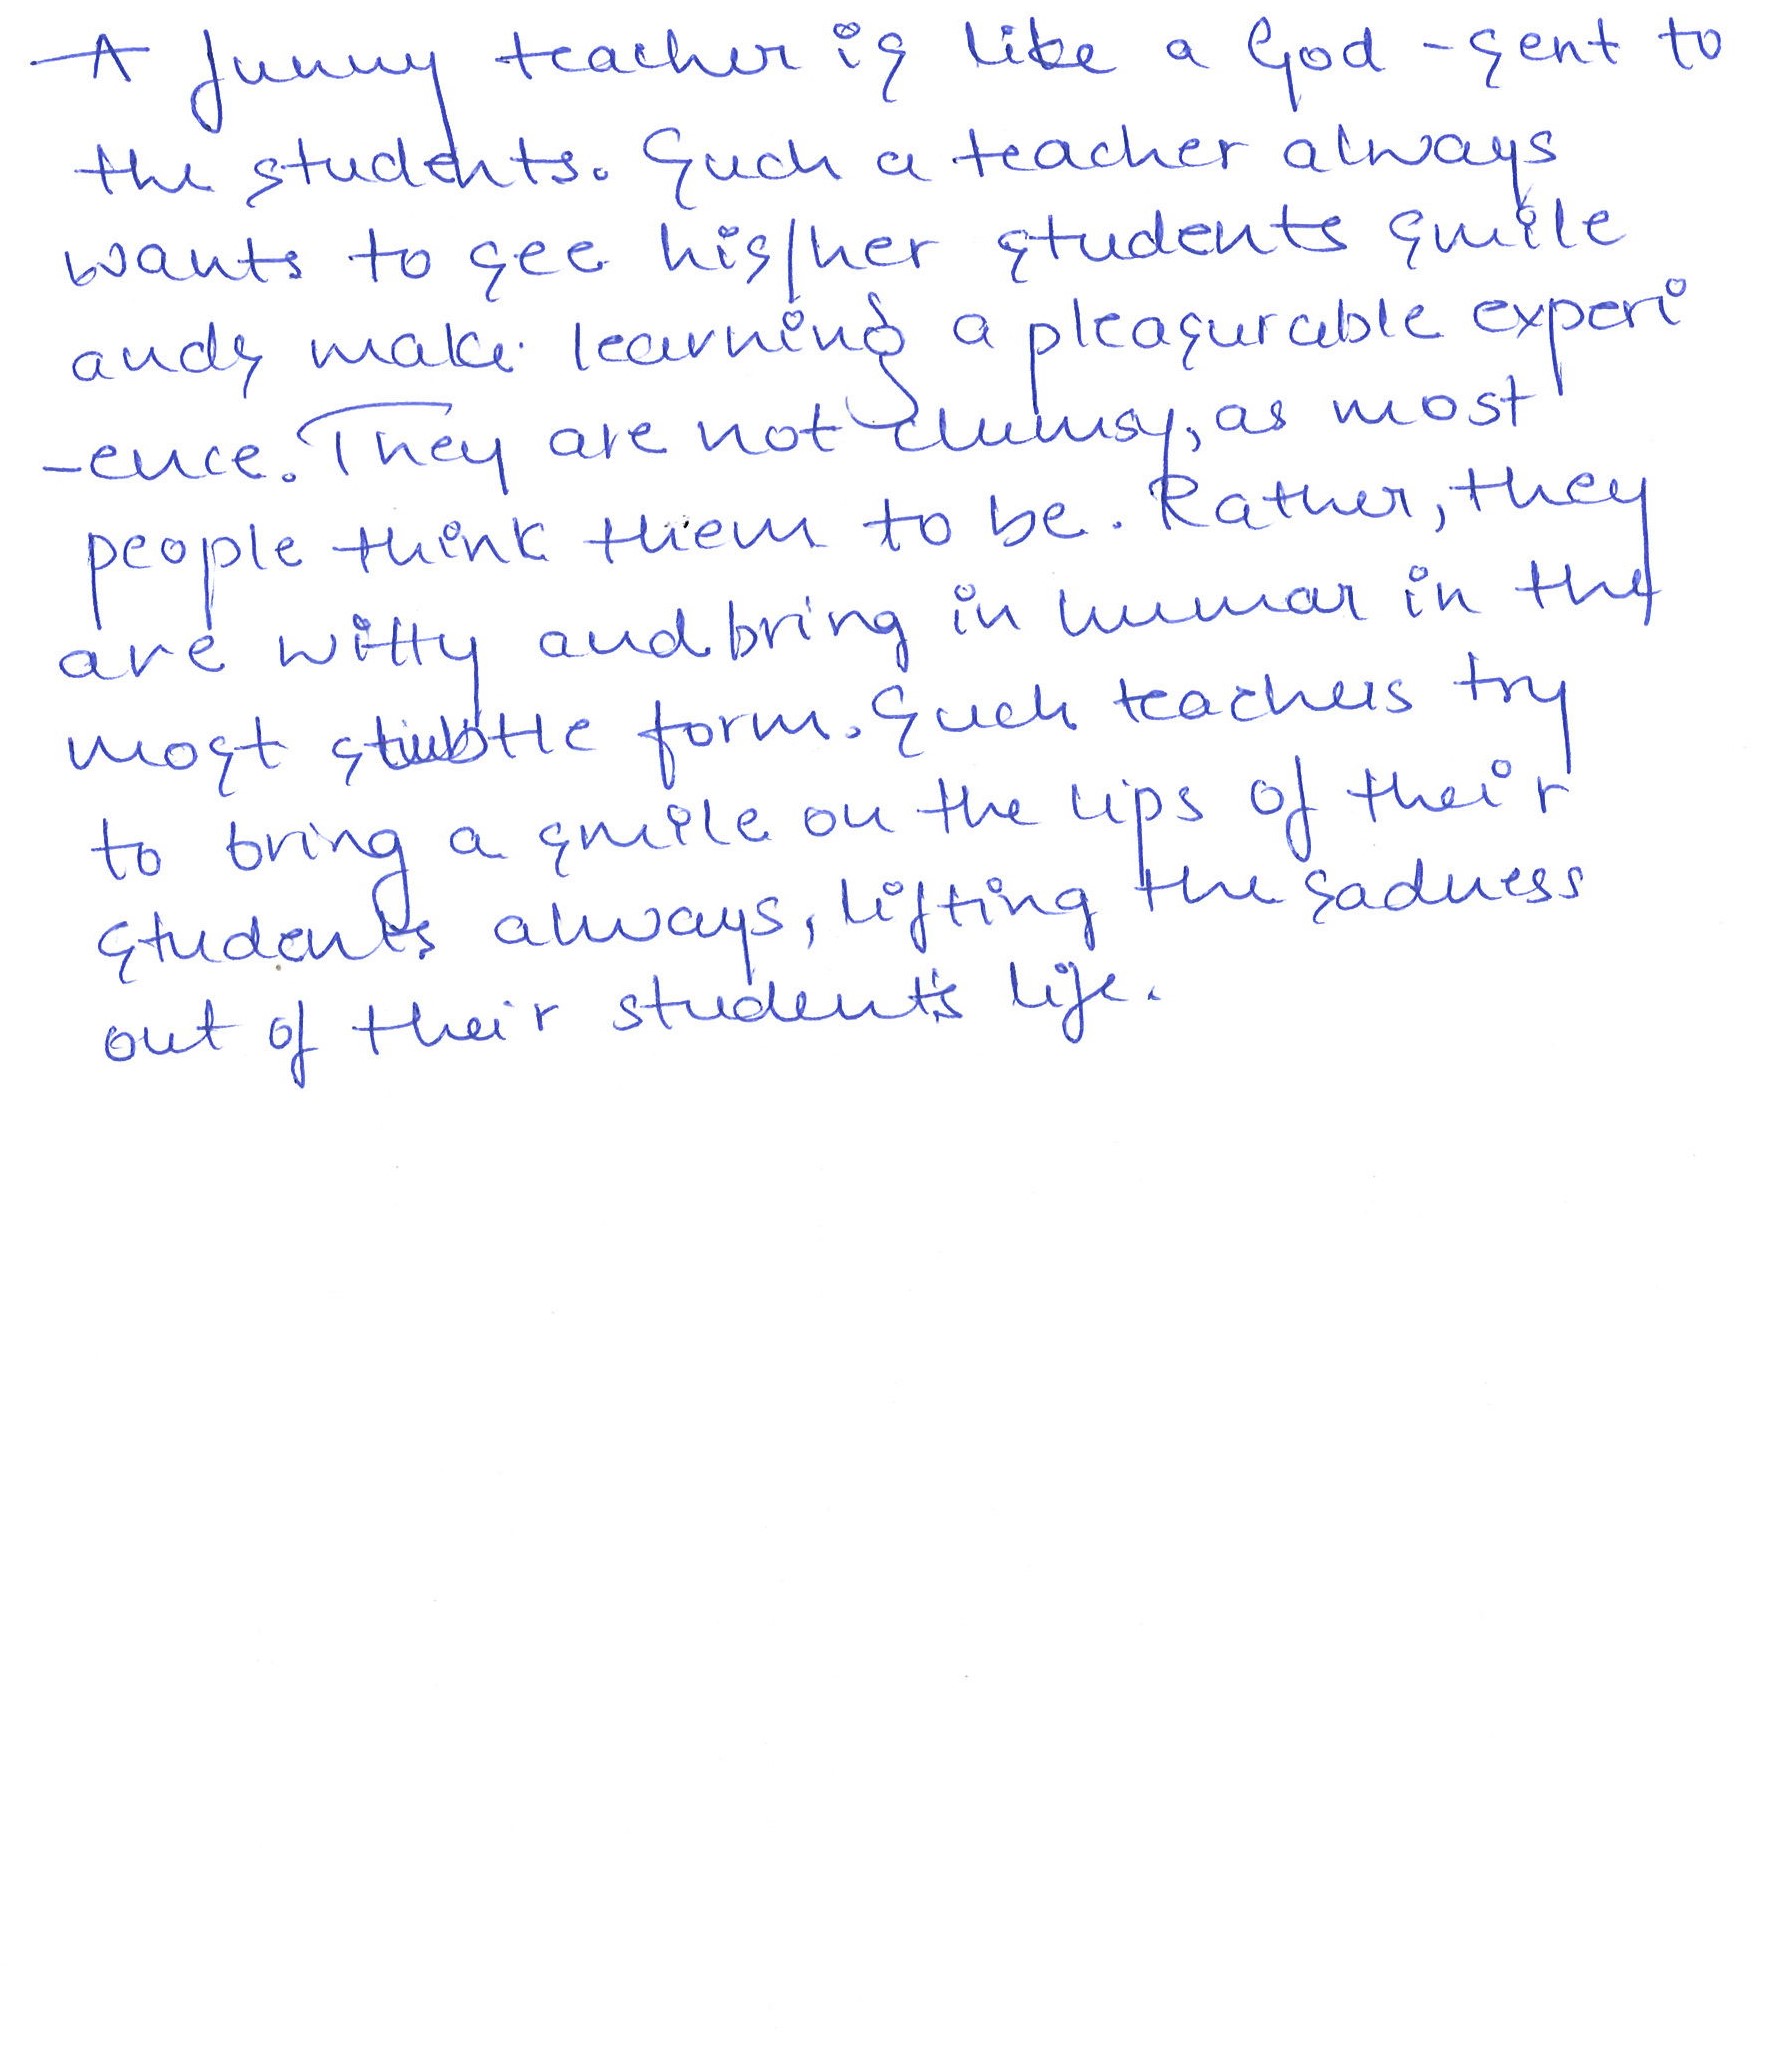 A funny teacher is like a God - sent to
the students. Such a teacher always
wants to see his/her students smile
and make learning a pleasurable experi
-ence. They are not clumsy, as most
people think them to be. Rather, they
are witty and bring in humar in the
most subtle form. Such teachers try
to bring a smile on the lips of their
students always, lifting the sadness
out of their student's life.